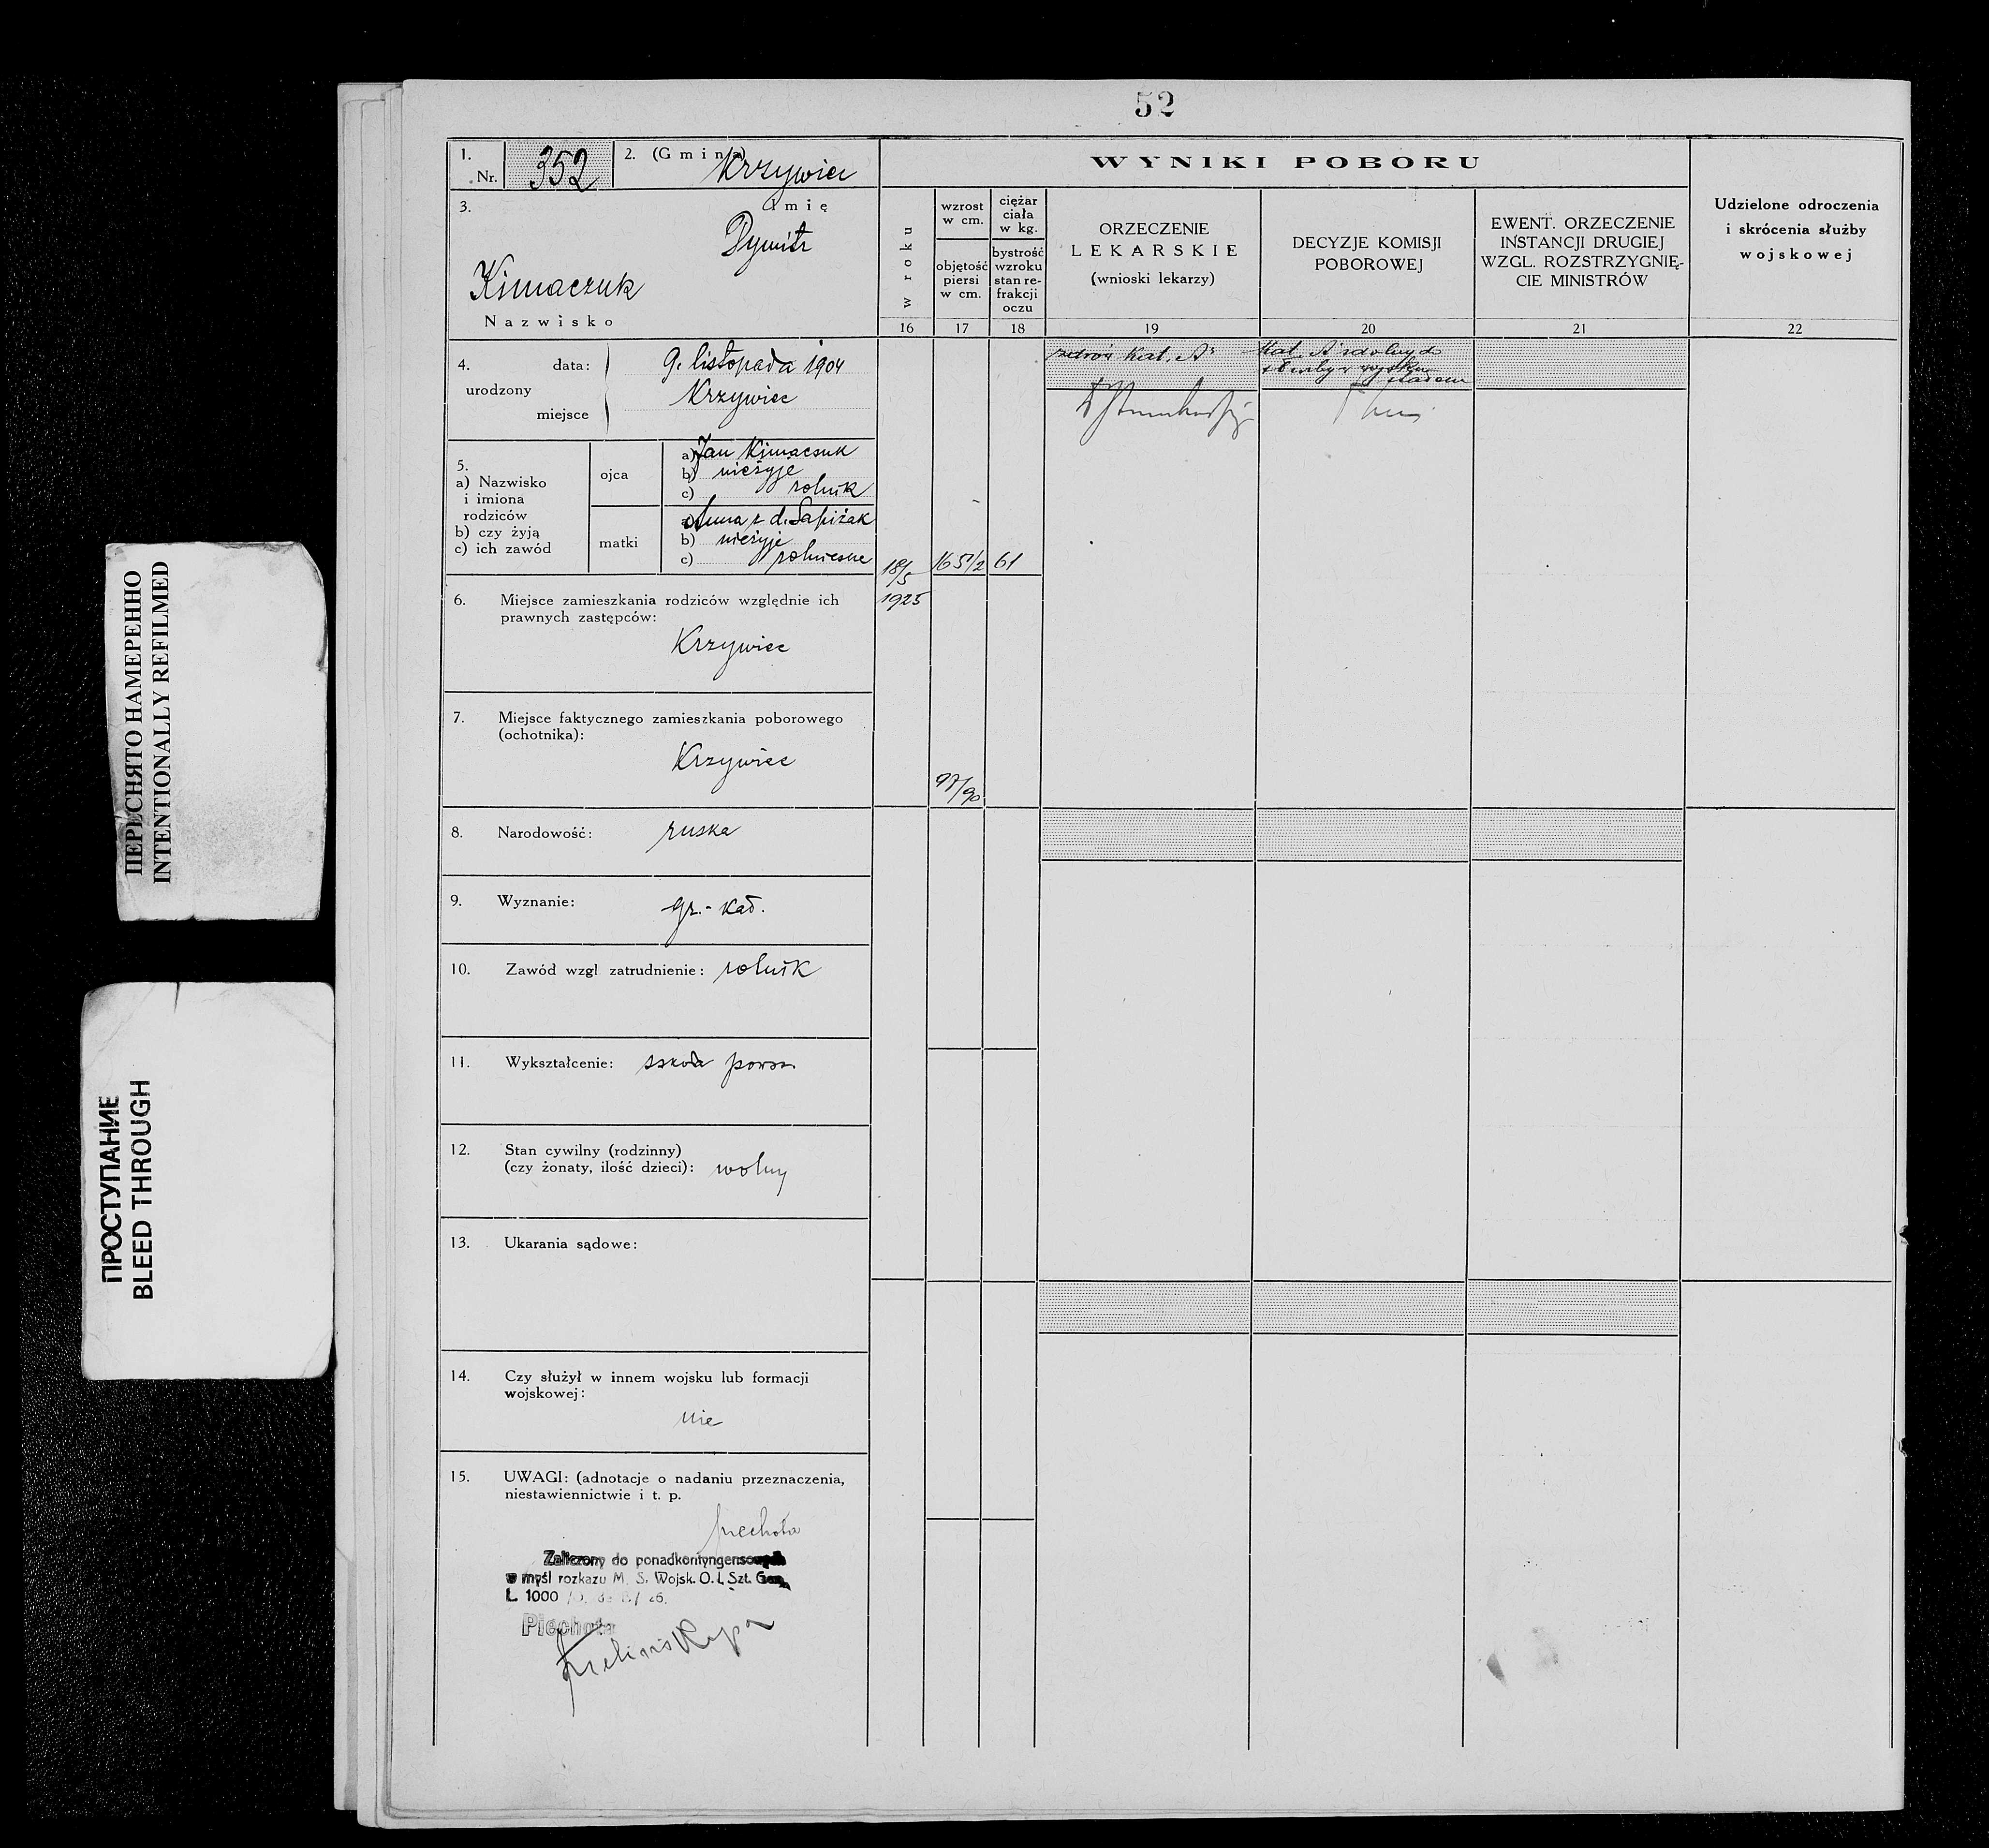 52
1.
Nr. 352
2. (Gmina)
Krzywiec
3.
Imię
Dymitr
Kimaczuk
Nazwisko
4.
urodzony
data: 9. listopada 1904
miejsce Krzywiec
5.
a) Nazwisko
i imiona
rodziców
b) czy żyją
c) ich zawód
ojca
a) Jan Kimaczuk
b) nieżyje
c) rolnik
matki
Anna z d. Sapiżak
b) nieżyje
c) rolnicza
6. Miejsce zamieszkania rodziców względnie ich
prawnych zastępców:
Krzywiec
7. Miejsce faktycznego zamieszkania poborowego
(ochotnika):
Krzywiec
8. Narodowość: ruska
9. Wyznanie: gr.-kat.
10. Zawód wzgl zatrudnienie: rolnik
11. Wykształcenie: szkoła powsz.
12. Stan cywilny (rodzinny)
(czy żonaty, ilość dzieci): wolny
13. Ukarania sądowe:
14. Czy służył w innem wojsku lub formacji
wojskowej:
nie
15. UWAGI: (adnotacje o nadaniu przeznaczenia,
niestawiennictwie i t. p.
piechota
Zaliczony do ponadkontyngensowych
w myśl rozkazu M. S. Wojsk. O. I. Szt. Gen.
L. 1000
Piechota
WYNIKI POBORU
w roku
16
wzrost
w cm.
objętość
piersi
w cm.
17
ciężar
ciała
w kg.
bystrość
wzroku
stan re-
frakcji
oczu
18
ORZECZENIE
LEKARSKIE
(wnioski lekarzy)
19
DECYZJE KOMISJI
POBOROWEJ
20
EWENT. ORZECZENIE
INSTANCJI DRUGIEJ
WZGL. ROZSTRZYGNIĘ-
CIE MINISTRÓW
21
Udzielone odroczenia
i skrócenia służby
wojskowej
22
18/5
1925
165 1/2
61
97/90
zdrów Kat. A
Kat. A zdolny do
służby w wojsku
ПЕРЕСНЯТО НАМЕРЕННО
INTENTIONALLY REFILMED
ПРОСТУПАНИЕ
BLEED THROUGH